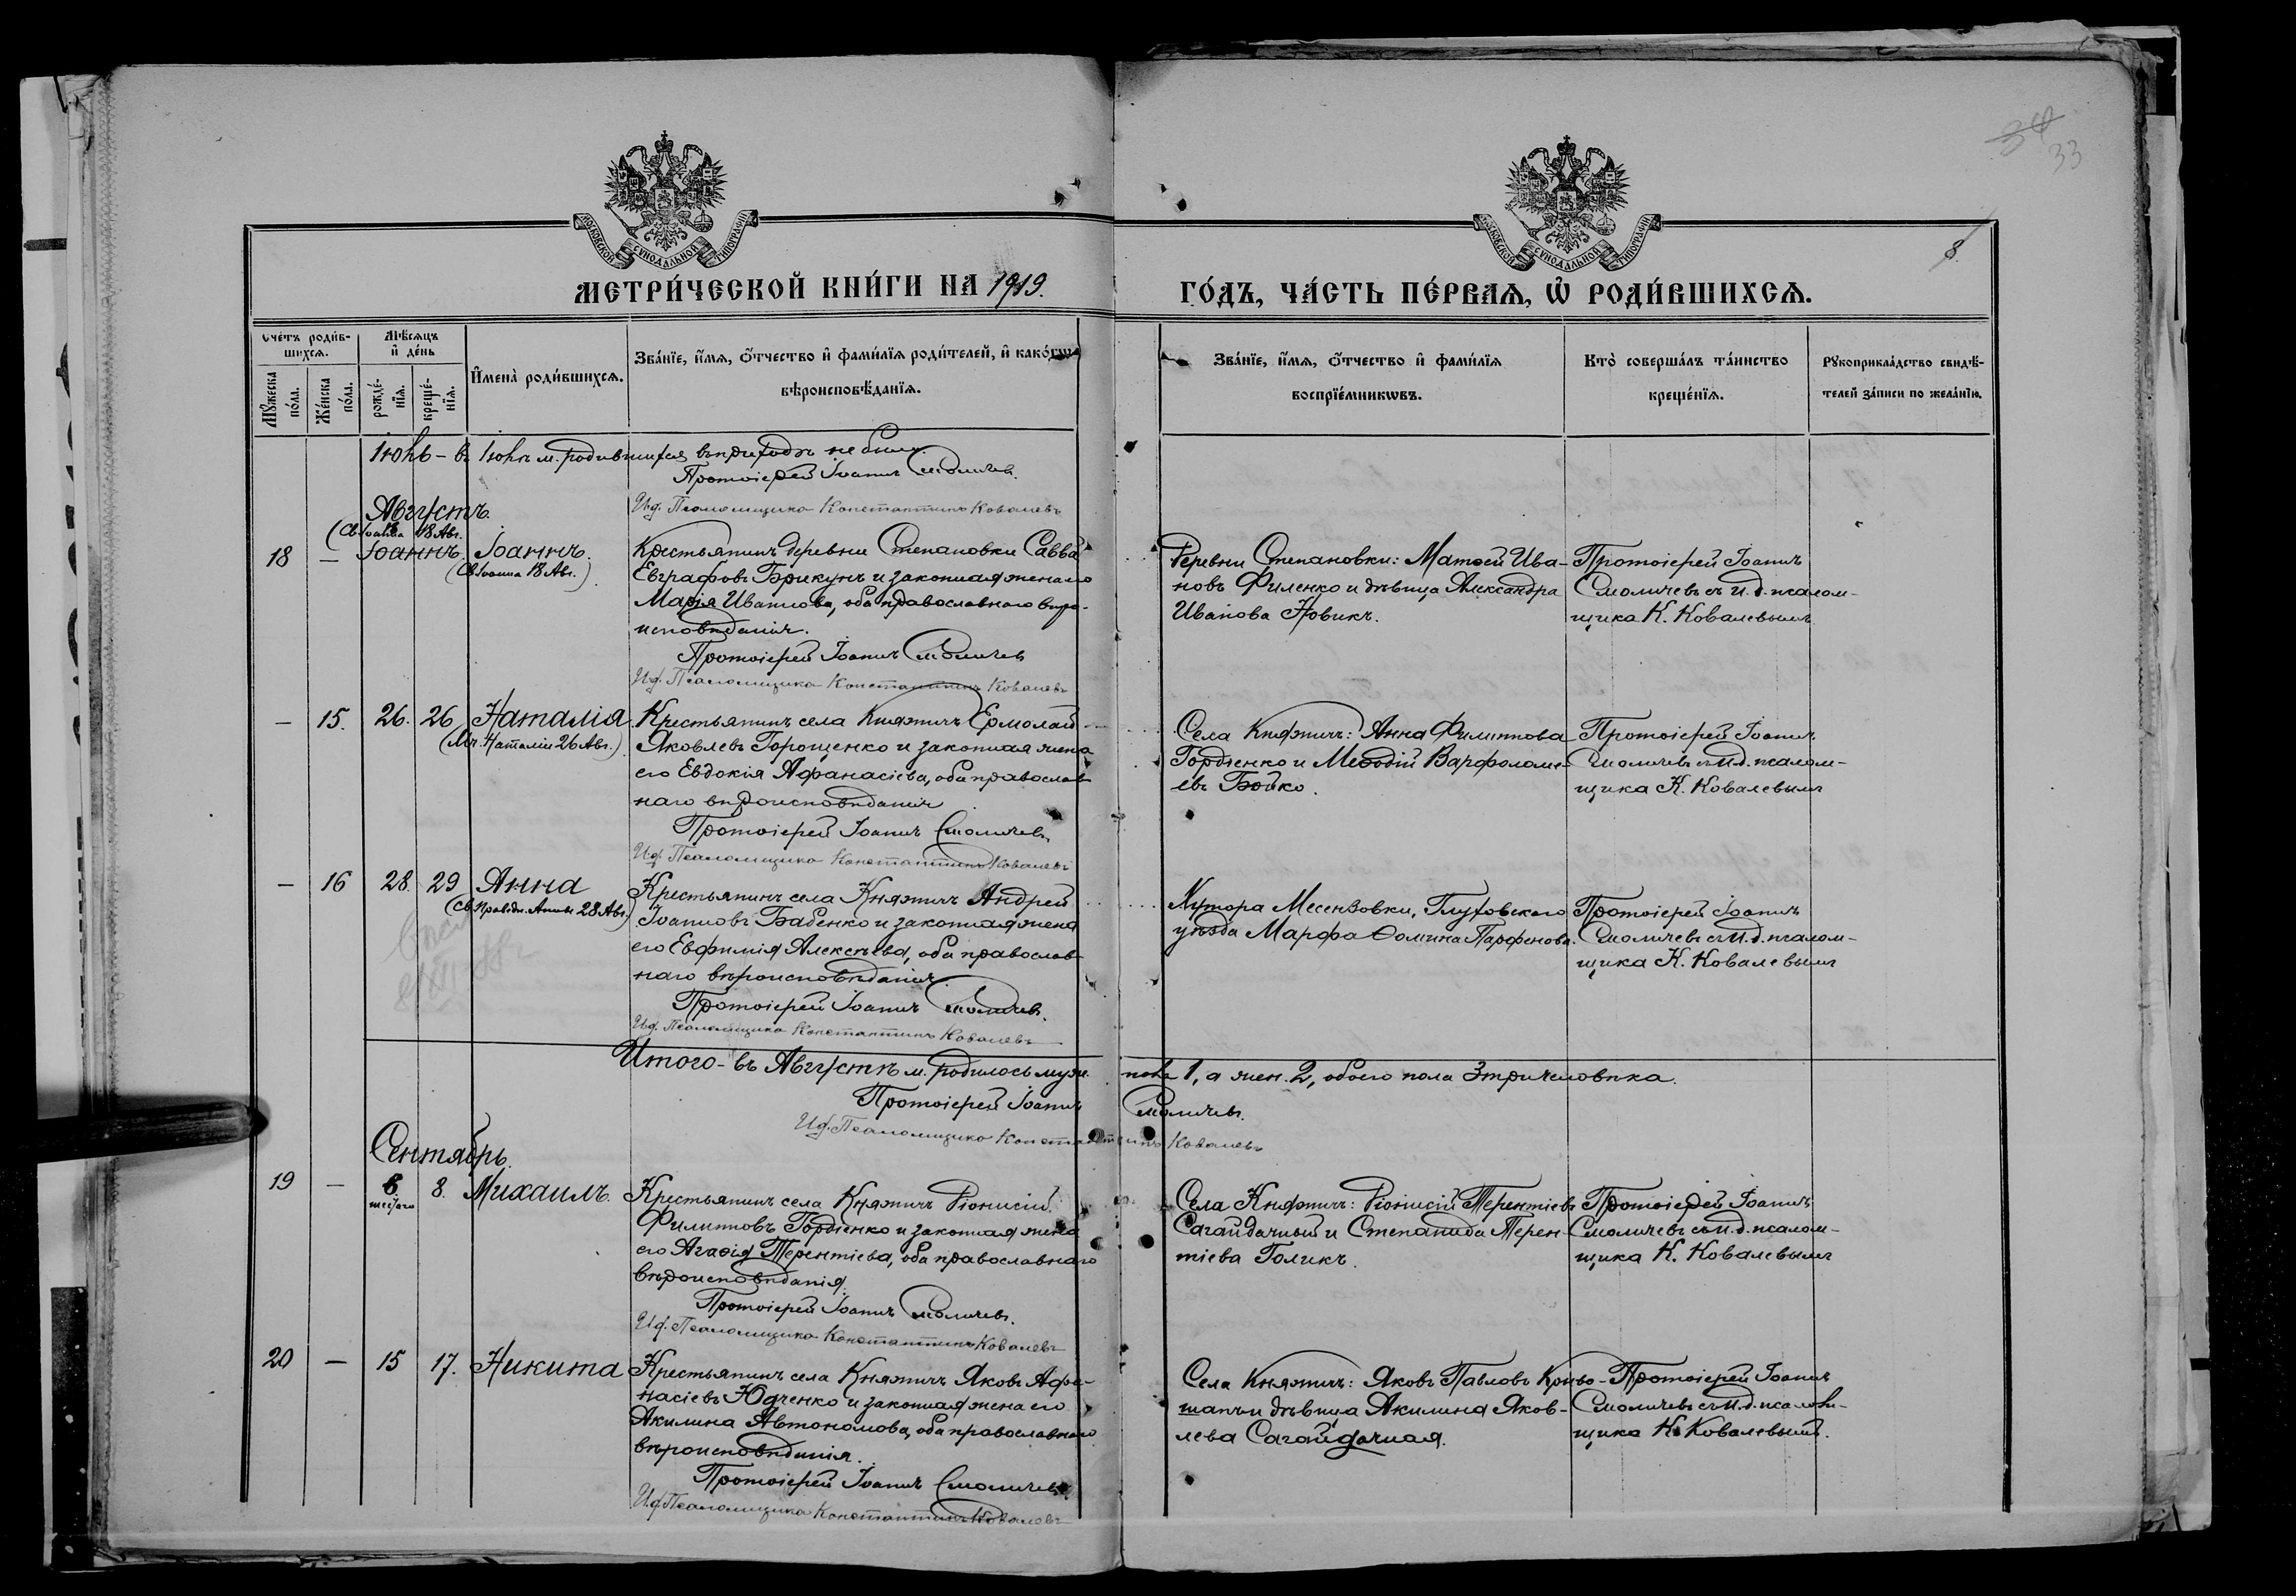 34
33
8
МОСКОВСКОЙ СУНОДАЛЬНОЙ ТИПОГРАФІИ
МОСКОВСКОЙ СУНОДАЛЬНОЙ ТИПОГРАФІИ
МЕТРИ́ЧЕСКОЙ КНИ́ГИ НА 1919.
ГО́ДЪ, ЧА́СТЬ ПЕ́РВАѦ, Ѡ РОДИ́ВШИХСѦ.
Сче́тъ роди́в-
шихсѧ.
Мѣ́сѧцъ
и҆ де́нь
Мꙋ́жеска
по́ла.
Же́нска
по́ла.
рожде́-
нїѧ.
креще́-
нїѧ.
И҆мена̀ роди́вшихсѧ.
Зва́нїе, и҆́мѧ, ѻ҆́тчество и҆ фами́лїѧ роди́телей, и҆ како́гѡ
вѣроисповѣ́данїѧ.
Зва́нїе, и҆́мѧ, ѻ҆́тчество и҆ фами́лїѧ
воспрїе́мникѡвъ.
Кто̀ соверша́лъ та́инство
креще́нїѧ.
Рꙋкоприкла́дство свидѣ́-
телей за́писи по жела́нїю.
Іюль – въ Іюлѣ м. родившихся въ приходѣ не было.
Протоіерей Іоаннъ Смоличевъ.
И.д. Псаломщика Константинъ Ковалевъ
Августъ.
(Св Іоанна 18 Авг.
18 – Іоаннъ. Іоаннъ.
(Св Іоанна 18 Авг.)
Крестьянинъ деревни Степановки Савва
Евграфовъ Брикунъ и законная жена его
Марія Иванова, оба православнаго вѣро-
исповѣданія.
Протоіерей Іоаннъ Смоличевъ
И.д. Псаломщика Константинъ Ковалевъ
Деревни Степановки: Матѳей Ива-
новъ Филенко и дѣвица Александра
Иванова Новикъ.
Протоіерей Іоаннъ
Смоличевъ съ и.д. псалом-
щика К. Ковалевымъ
– 15. 26. 26 Наталія
(Мч. Наталіи 26 Авг.)
Крестьянинъ села Княжичъ Ермолай
Яковлевъ Горощенко и законная жена
его Евдокія Афанасіева, оба православ-
наго вѣроисповѣданія
Протоіерей Іоаннъ Смоличевъ
И.д. Псаломщика Константинъ Ковалевъ
Села Княжичъ: Анна Филиппова
Гордіенко и Меѳодій Варфоломе-
евъ Бойко.
Протоіерей Іоаннъ
Смоличевъ съ и.д. псалом-
щика К. Ковалевымъ
– 16 28. 29 Анна
(Св. Праведн. Анны 28 Авг.)
Крестьянинъ села Княжичъ Андрей
Іоанновъ Бабенко и законная жена
его Евфимія Алексѣева, оба православ-
наго вѣроисповѣданія
Протоіерей Іоаннъ Смоличевъ.
И.д. Псаломщика Константинъ Ковалевъ
Хутора Глуховского
уѣзда Марфа Ѳомина Парфенова.
Протоіерей Іоаннъ
Смоличевъ съ и.д. псалом-
щика К. Ковалевымъ
Итого – въ Августѣ м. родилось муж. пола 1, а жен. 2, обоего пола 3 три человѣка.
Протоіерей Іоаннъ Смоличевъ.
И.д. Псаломщика Константинъ Ковалевъ
Сентябрь.
19 – 6 8. Михаилъ.
шестого
Крестьянинъ села Княжичъ Діонисій
Филипповъ Гордіенко и законная жена
его Агаѳія Терентіева, оба православнаго
вѣроисповѣданія.
Протоіерей Іоаннъ Смоличевъ.
И.д. Псаломщика Константинъ Ковалевъ
Села Княжичъ: Діонисій Терентіевъ
Сагайдачный и Степанида Терен-
тіева Голикъ.
Протоіерей Іоаннъ
Смоличевъ съ и.д. псалом-
щика К. Ковалевымъ
20 – 15 17. Никита
Крестьянинъ села Княжичъ Яковъ Афа-
насіевъ Юдченко и законная жена его
Акилина Автономова, оба православнаго
вѣроисповѣданія.
Протоіерей Іоаннъ Смоличевъ.
И.д. Псаломщика Константинъ Ковалевъ
Села Княжичъ: Яковъ Павловъ Криво-
шапъ и дѣвица Акилина Яков-
лева Сагайдачная.
Протоіерей Іоаннъ
Смоличевъ съ и.д. псалом-
щика К. Ковалевымъ.